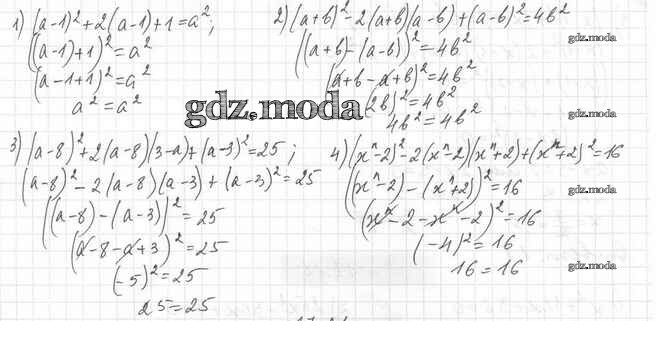 1) (a-1)²+2(a-1)+1=a²;
((a-1)+1)²=a²
(a-1+1)²=a²
a²=a²
2) (a+b)²-2(a+b)(a-b)+(a-b)²=4b²
((a+b)-(a-b))²=4b²
(a+b-a+b)²=4b²
(2b)²=4b²
4b²=4b²
gdz.moda
gdz.moda
gdz.moda
3) (a-8)²+2(a-8)(3-a)+(a-3)²=25;
(a-8)²-2(a-8)(a-3)+(a-3)²=25
((a-8)-(a-3))²=25
(a-8-a+3)²=25
(-5)²=25
25=25
4) (xⁿ-2)²-2(xⁿ-2)(xⁿ+2)+(xⁿ+2)²=16
((xⁿ-2)-(xⁿ+2))²=16
(xⁿ-2-xⁿ-2)²=16
(-4)²=16
16=16
gdz.moda
gdz.moda